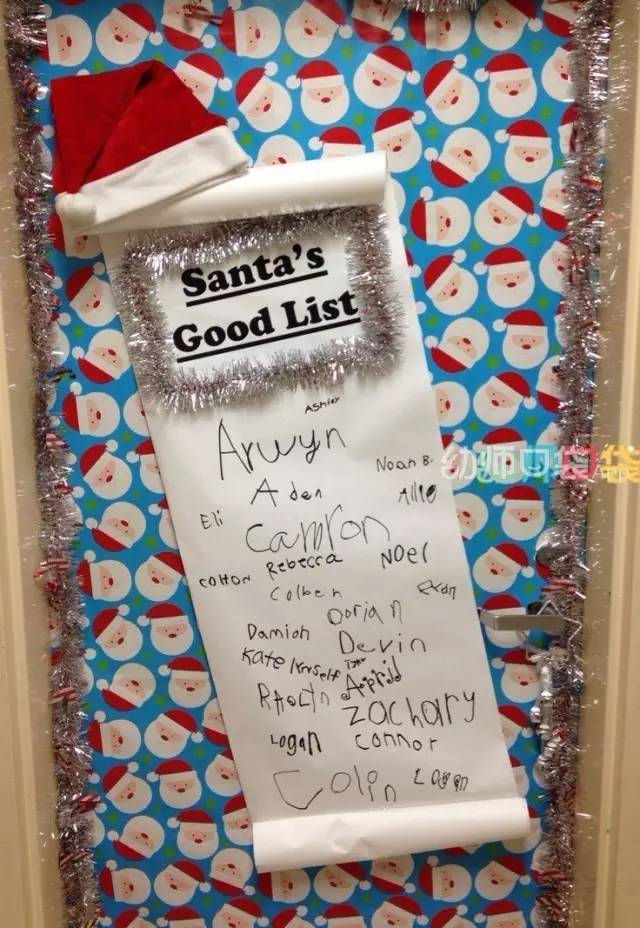 Santa's
Good List
Ashley
Arwyn
Noah B.
Aden
Allie
Eli
Camron
Rebecca
Noel
colton
Colben
Evan
Dorian
Damion
Devin
Kate
April
zachary
Logan
connor
Colin
Logan
幼师口袋